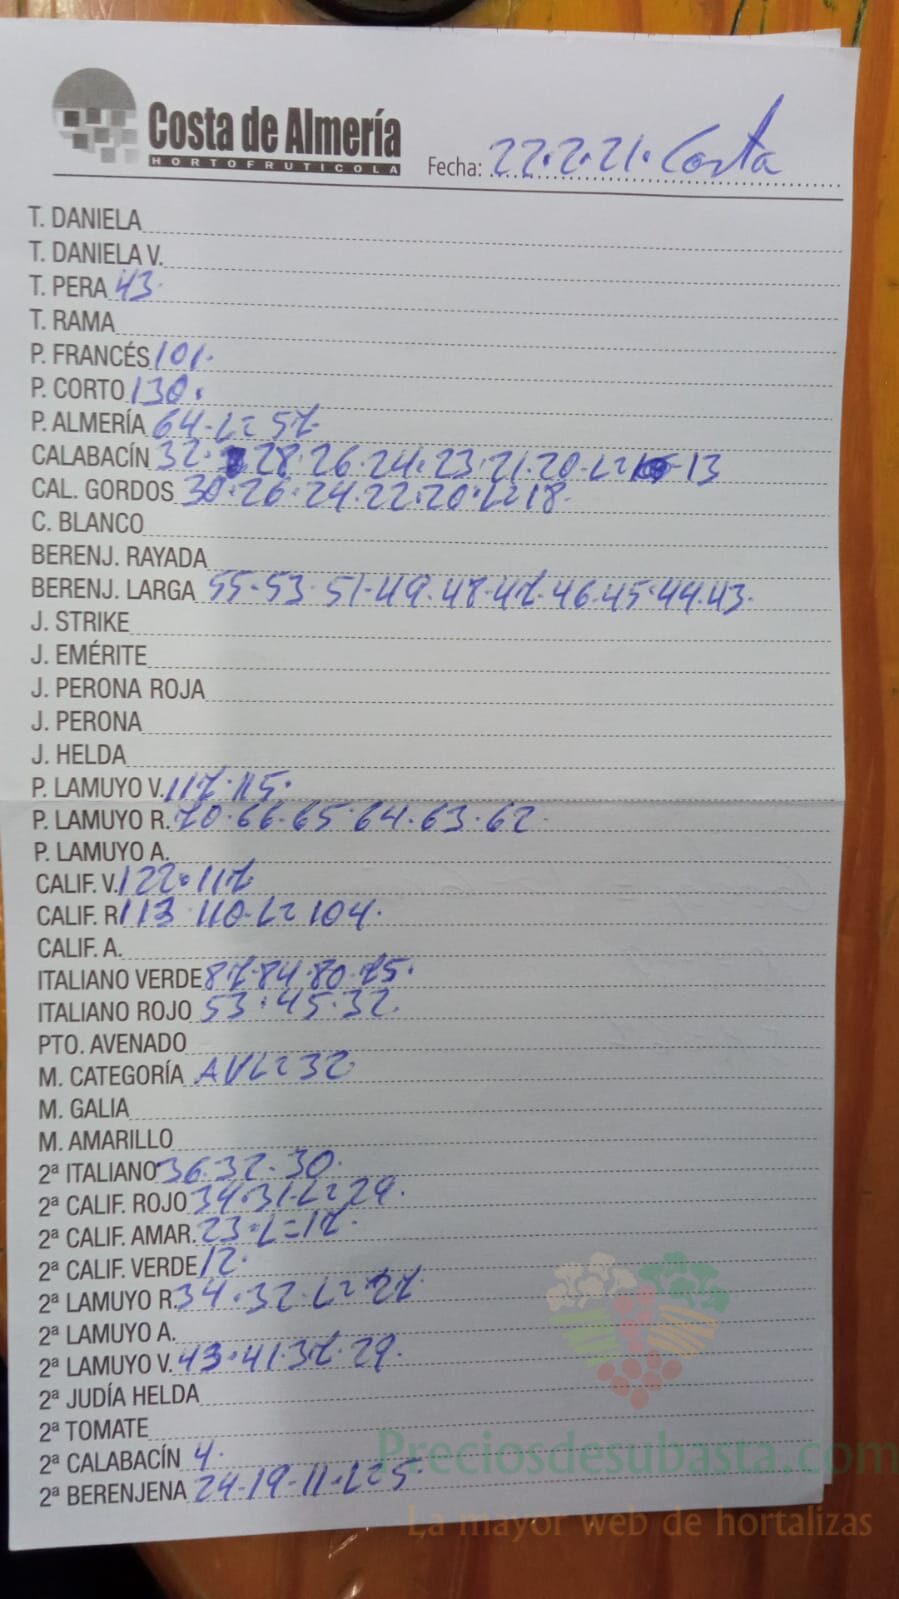 Costa de Almería
HORTOFRUTÍCOLA
Fecha: 22.2.21. Costa
T. DANIELA
T. DANIELA V.
T. PERA 43.
T. RAMA
P. FRANCÉS 101.
P. CORTO 130.
P. ALMERÍA 64-L=57
CALABACÍN 32. 28.26.24.23.21.20-L= 13
CAL. GORDOS 30.26.24.22.20.L=18.
C. BLANCO
BERENJ. RAYADA
BERENJ. LARGA 55.53.51.49.48.47.46.45.44.43.
J. STRIKE
J. EMÉRITE
J. PERONA ROJA
J. PERONA
J. HELDA
P. LAMUYO V. 117.115.
P. LAMUYO R. 70.66.65.64.63.62.
P. LAMUYO A.
CALIF. V. 122.117.
CALIF. R 113 110-L=104.
CALIF. A.
ITALIANO VERDE 87.84.80.75.
ITALIANO ROJO 53.45.32.
PTO. AVENADO
M. CATEGORÍA AVL=32.
M. GALIA
M. AMARILLO
2ª ITALIANO 36.32.30.
2ª CALIF. ROJO 34.31-L=29.
2ª CALIF. AMAR. 23.L=17.
2ª CALIF. VERDE 12.
2ª LAMUYO R. 34.32.L=27.
2ª LAMUYO A.
2ª LAMUYO V. 43.41.37.29.
2ª JUDÍA HELDA
2ª TOMATE
2ª CALABACÍN 4.
2ª BERENJENA 24-19-11-L=5.
Preciosdesubasta.com
La mayor web de hortalizas